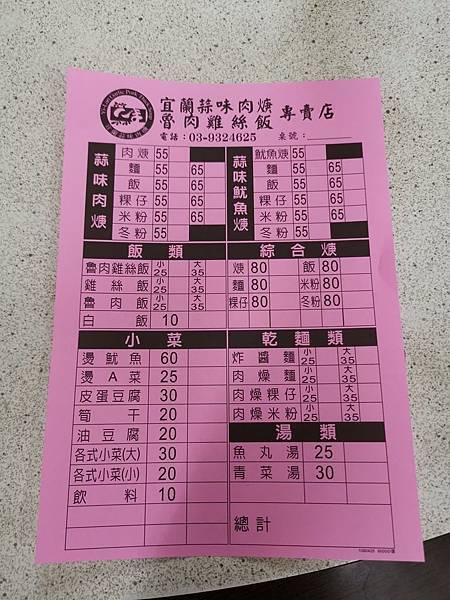 宜蘭蒜味肉焿
魯肉雞絲飯
專賣店
電話：03-9324625 桌號：
蒜味肉焿
肉焿 55
麵 55 65
飯 55 65
粿仔 55 65
米粉 55 65
冬粉 55
蒜味魷魚焿
魷魚焿 55
麵 55 65
飯 55 65
粿仔 55 65
米粉 55 65
冬粉 55
飯類
魯肉雞絲飯 小25 大35
雞絲飯 小25 大35
魯肉飯 小25 大35
白飯 10
綜合焿
焿 80 飯 80
麵 80 米粉 80
粿仔 80 冬粉 80
小菜
燙魷魚 60
燙A菜 25
皮蛋豆腐 30
筍干 20
油豆腐 20
各式小菜(大) 30
各式小菜(小) 20
飲料 10
乾麵類
炸醬麵 小25 大35
肉燥麵 小25 大35
肉燥粿仔 小25 大35
肉燥米粉 小25 大35
湯類
魚丸湯 25
青菜湯 30
總計